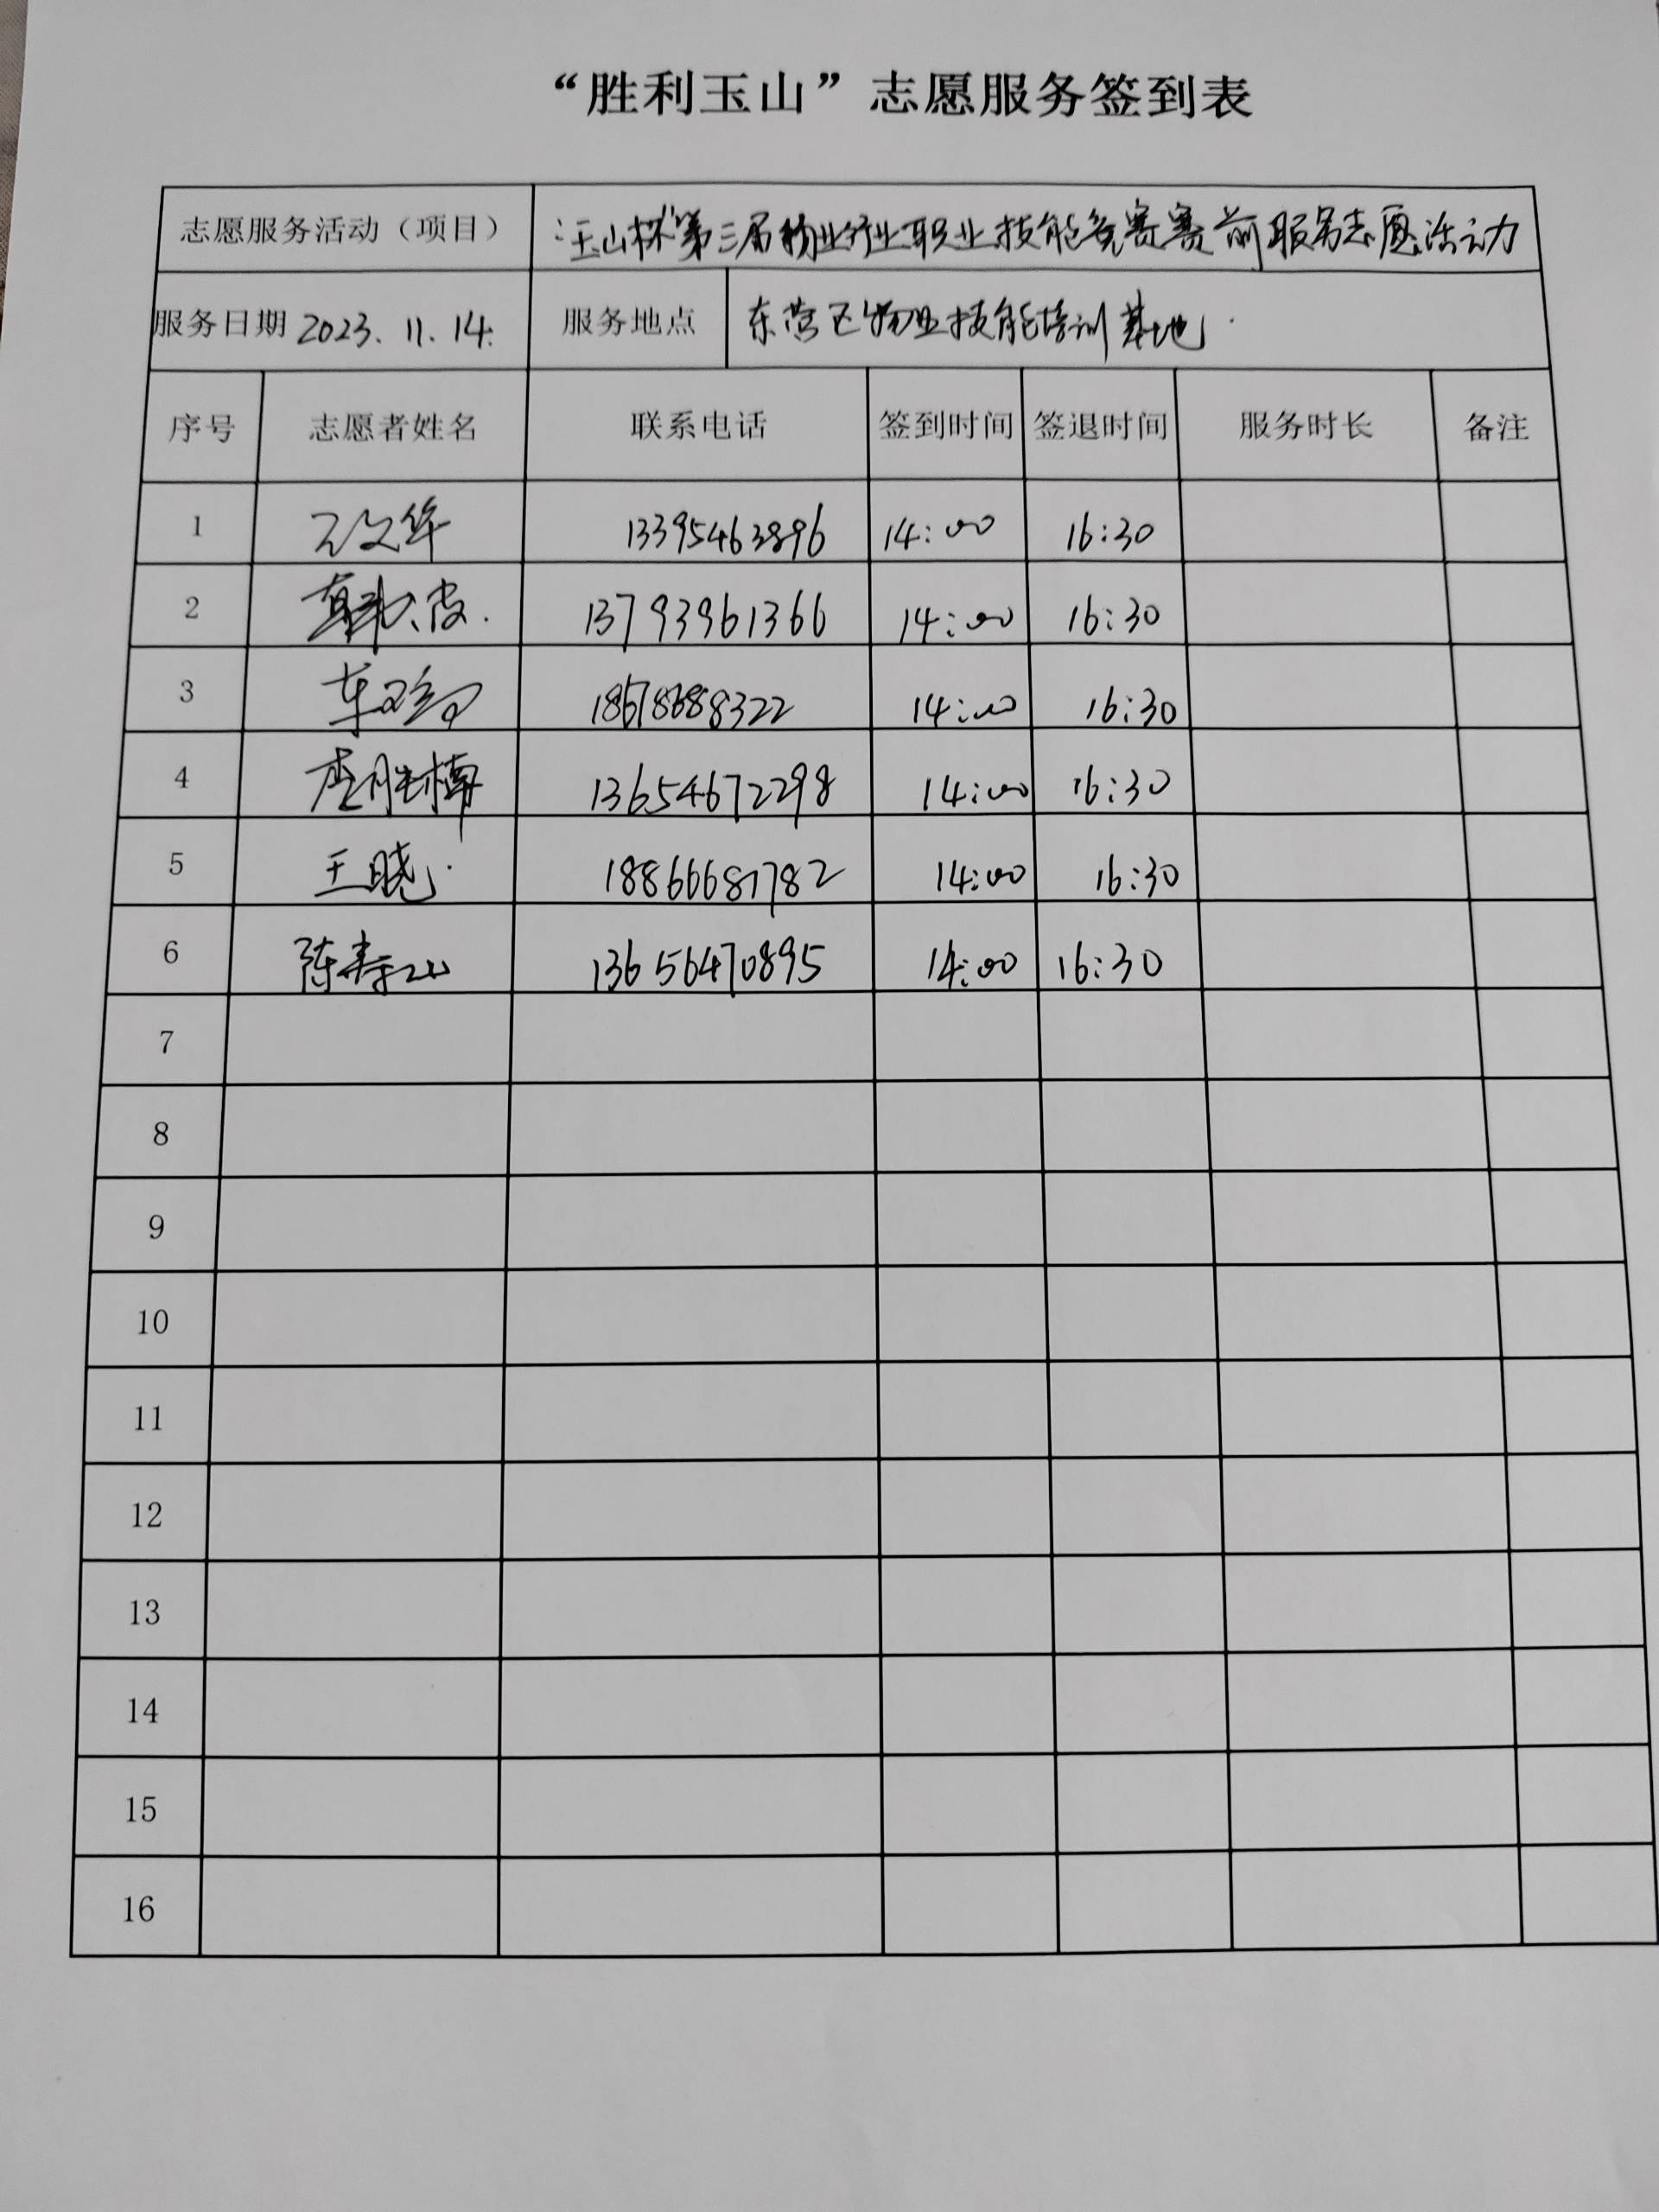 “胜利玉山”志愿服务签到表
志愿服务活动（项目） “玉山杯”第三届物业行业职业技能竞赛赛前服务志愿活动
服务日期 2023.11.14. 服务地点 东营区物业技能培训基地.
序号 志愿者姓名 联系电话 签到时间 签退时间 服务时长 备注
1 王文华 13395463896 14:00 16:30
2 13793961366 14:00 16:30
3 14:00 16:30
4 胜楠 13654672298 14:00 16:30
5 王晓. 18866681782 14:00 16:30
6 陈寿山 13656470895 14:00 16:30
7
8
9
10
11
12
13
14
15
16